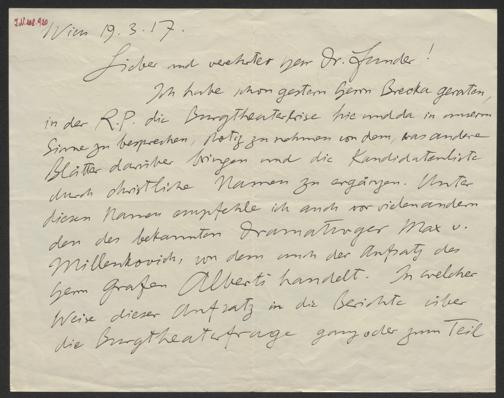 Wien 19.3.17.
Lieber und verehrter Herr Dr. Funder!
Ich habe schon gestern Herrn Brecka geraten,
in der R.P. die Burgtheaterkrise hie und da in unserm
Sinne zu besprechen, Notiz zu nehmen von dem, was andere
Blätter darüber bringen und die Kandidatenliste
durch christliche Namen zu ergänzen. Unter
diesen Namen empfehle ich auch vor vielen andern
den des bekannten Dramaturgen Max v.
Millenkovich, von dem auch der Aufsatz des
Herrn Grafen Alberti handelt. In welcher
Weise dieser Aufsatz in die Berichte über
die Burgtheaterfrage ganz oder zum Teil